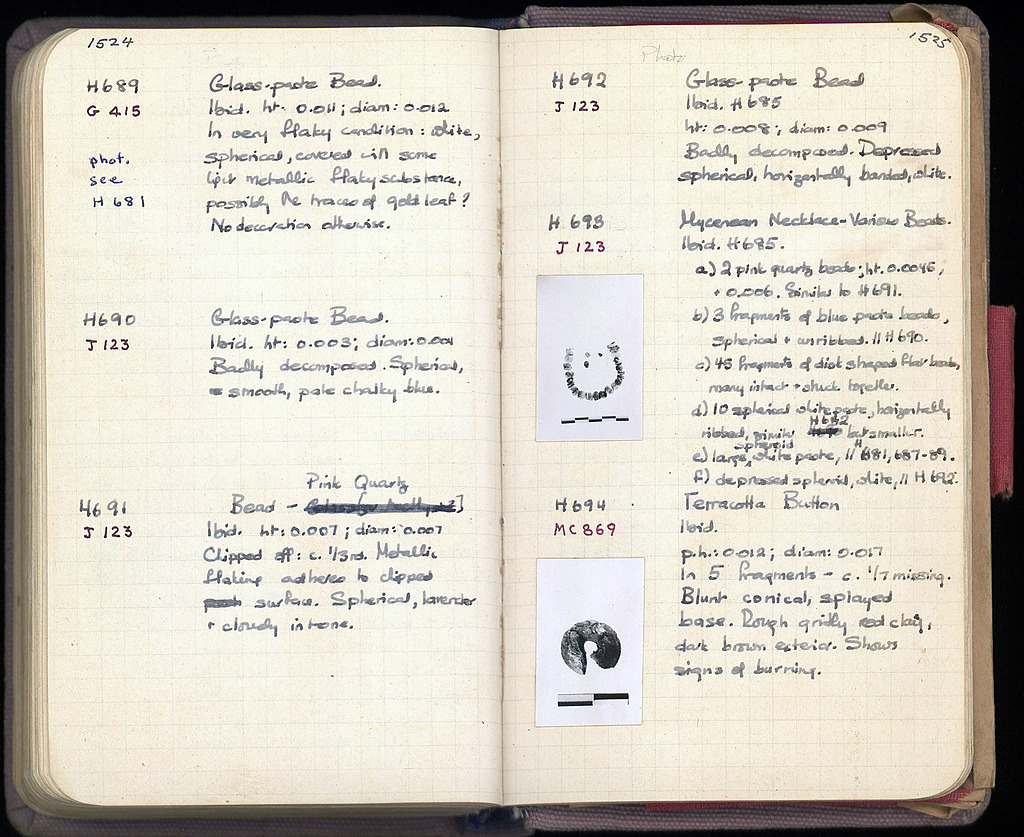 1524
H689 Glass-paste Bead.
G 415 Ibid. ht: 0.011; diam: 0.012
In very flaky condition: white,
phot. spherical, covered with some
see light metallic flaky substance,
H 681 possibly the traces of gold leaf?
No decoration otherwise.
H690 Glass-paste Bead.
J 123 Ibid. ht: 0.003; diam: 0.004
Badly decomposed. Spherical,
smooth, pale chalky blue.
Pink Quartz
H691 Bead -
J 123 Ibid. ht: 0.007; diam: 0.007
Clipped off: c. 1/3rd. Metallic
flaking adheres to clipped
surface. Spherical, lavender
+ cloudy in tone.
1525
Photo
H692 Glass-paste Bead
J 123 Ibid. H685
ht: 0.008; diam: 0.009
Badly decomposed. Depressed
spherical, horizontally banded, white.
H 693 Mycenean Necklace-Various Beads.
J 123 Ibid. H685.
a) 2 pink quartz beads; ht. 0.0045,
+ 0.006. Similar to H691.
b) 3 fragments of blue paste beads,
spherical + unribbed. // H690.
c) 45 fragments of disk shaped flat beads,
many intact + stuck together.
d) 10 spherical white paste, horizontally
ribbed, similar H692 but smaller.
e) large, spheroid white paste, // H681, 687-89.
f) depressed spheroid, white, // H692.
H694 Terracotta Button
MC 869 Ibid.
p.h.: 0.012; diam: 0.017
In 5 fragments - c. 1/7 missing.
Blunt conical, splayed
base. Rough gridly red clay,
dark brown exterior. Shows
signs of burning.